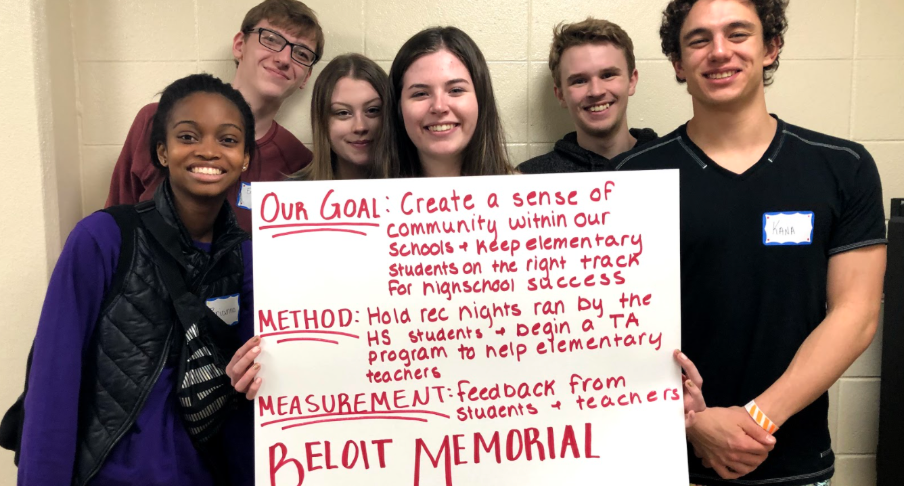 OUR GOAL: Create a sense of
community within our
schools + keep elementary
students on the right track
for highschool success
METHOD: Hold rec nights ran by the
HS students + begin a TA
program to help elementary
teachers
MEASUREMENT: feedback from
students + teachers
BELOIT MEMORIAL
KANA